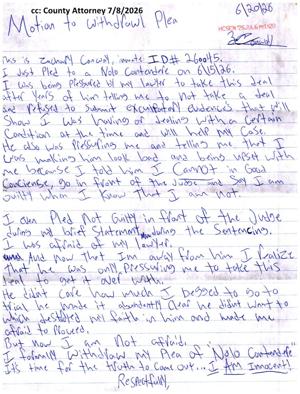 cc: County Attorney 7/8/2026
6/20/26
Motion to withdrawl Plea
This is Zachary Conrad, inmate ID# 260045.
I Just Pled to a Nolo Contendere on 6/5/26.
I was being pressured by my lawyer to take this deal
after years of him telling me to not take a deal
and Refused to submit exculpatory evidences that will
Show I was having or dealing with a Certain
Condition at the time and will help My Case.
He also was Pressuring me and telling me that I
was making him look bad and being upset with
me because I told him I Cannot in Good
Conciense, go in front of the Judge and Say I am
guilty when I know that I am not.
I even Pled Not Guilty in front of the Judge
during my brief Statement during the Sentencing.
I was afraid of my lawyer.
And Now that I'm away from him I Realize
that he was only pressuring me to take this
deal to get it over with.
He didnt care how much I begged to go to
trial he made it abundantly clear he didnt want to
which destroyed my faith in him and made me
afraid to Proceed.
But now I am Not afraid.
I formally withdraw my Plea of "Nolo Contendere"
It's time for the truth to come out... I Am Innocent!
Respectfully,